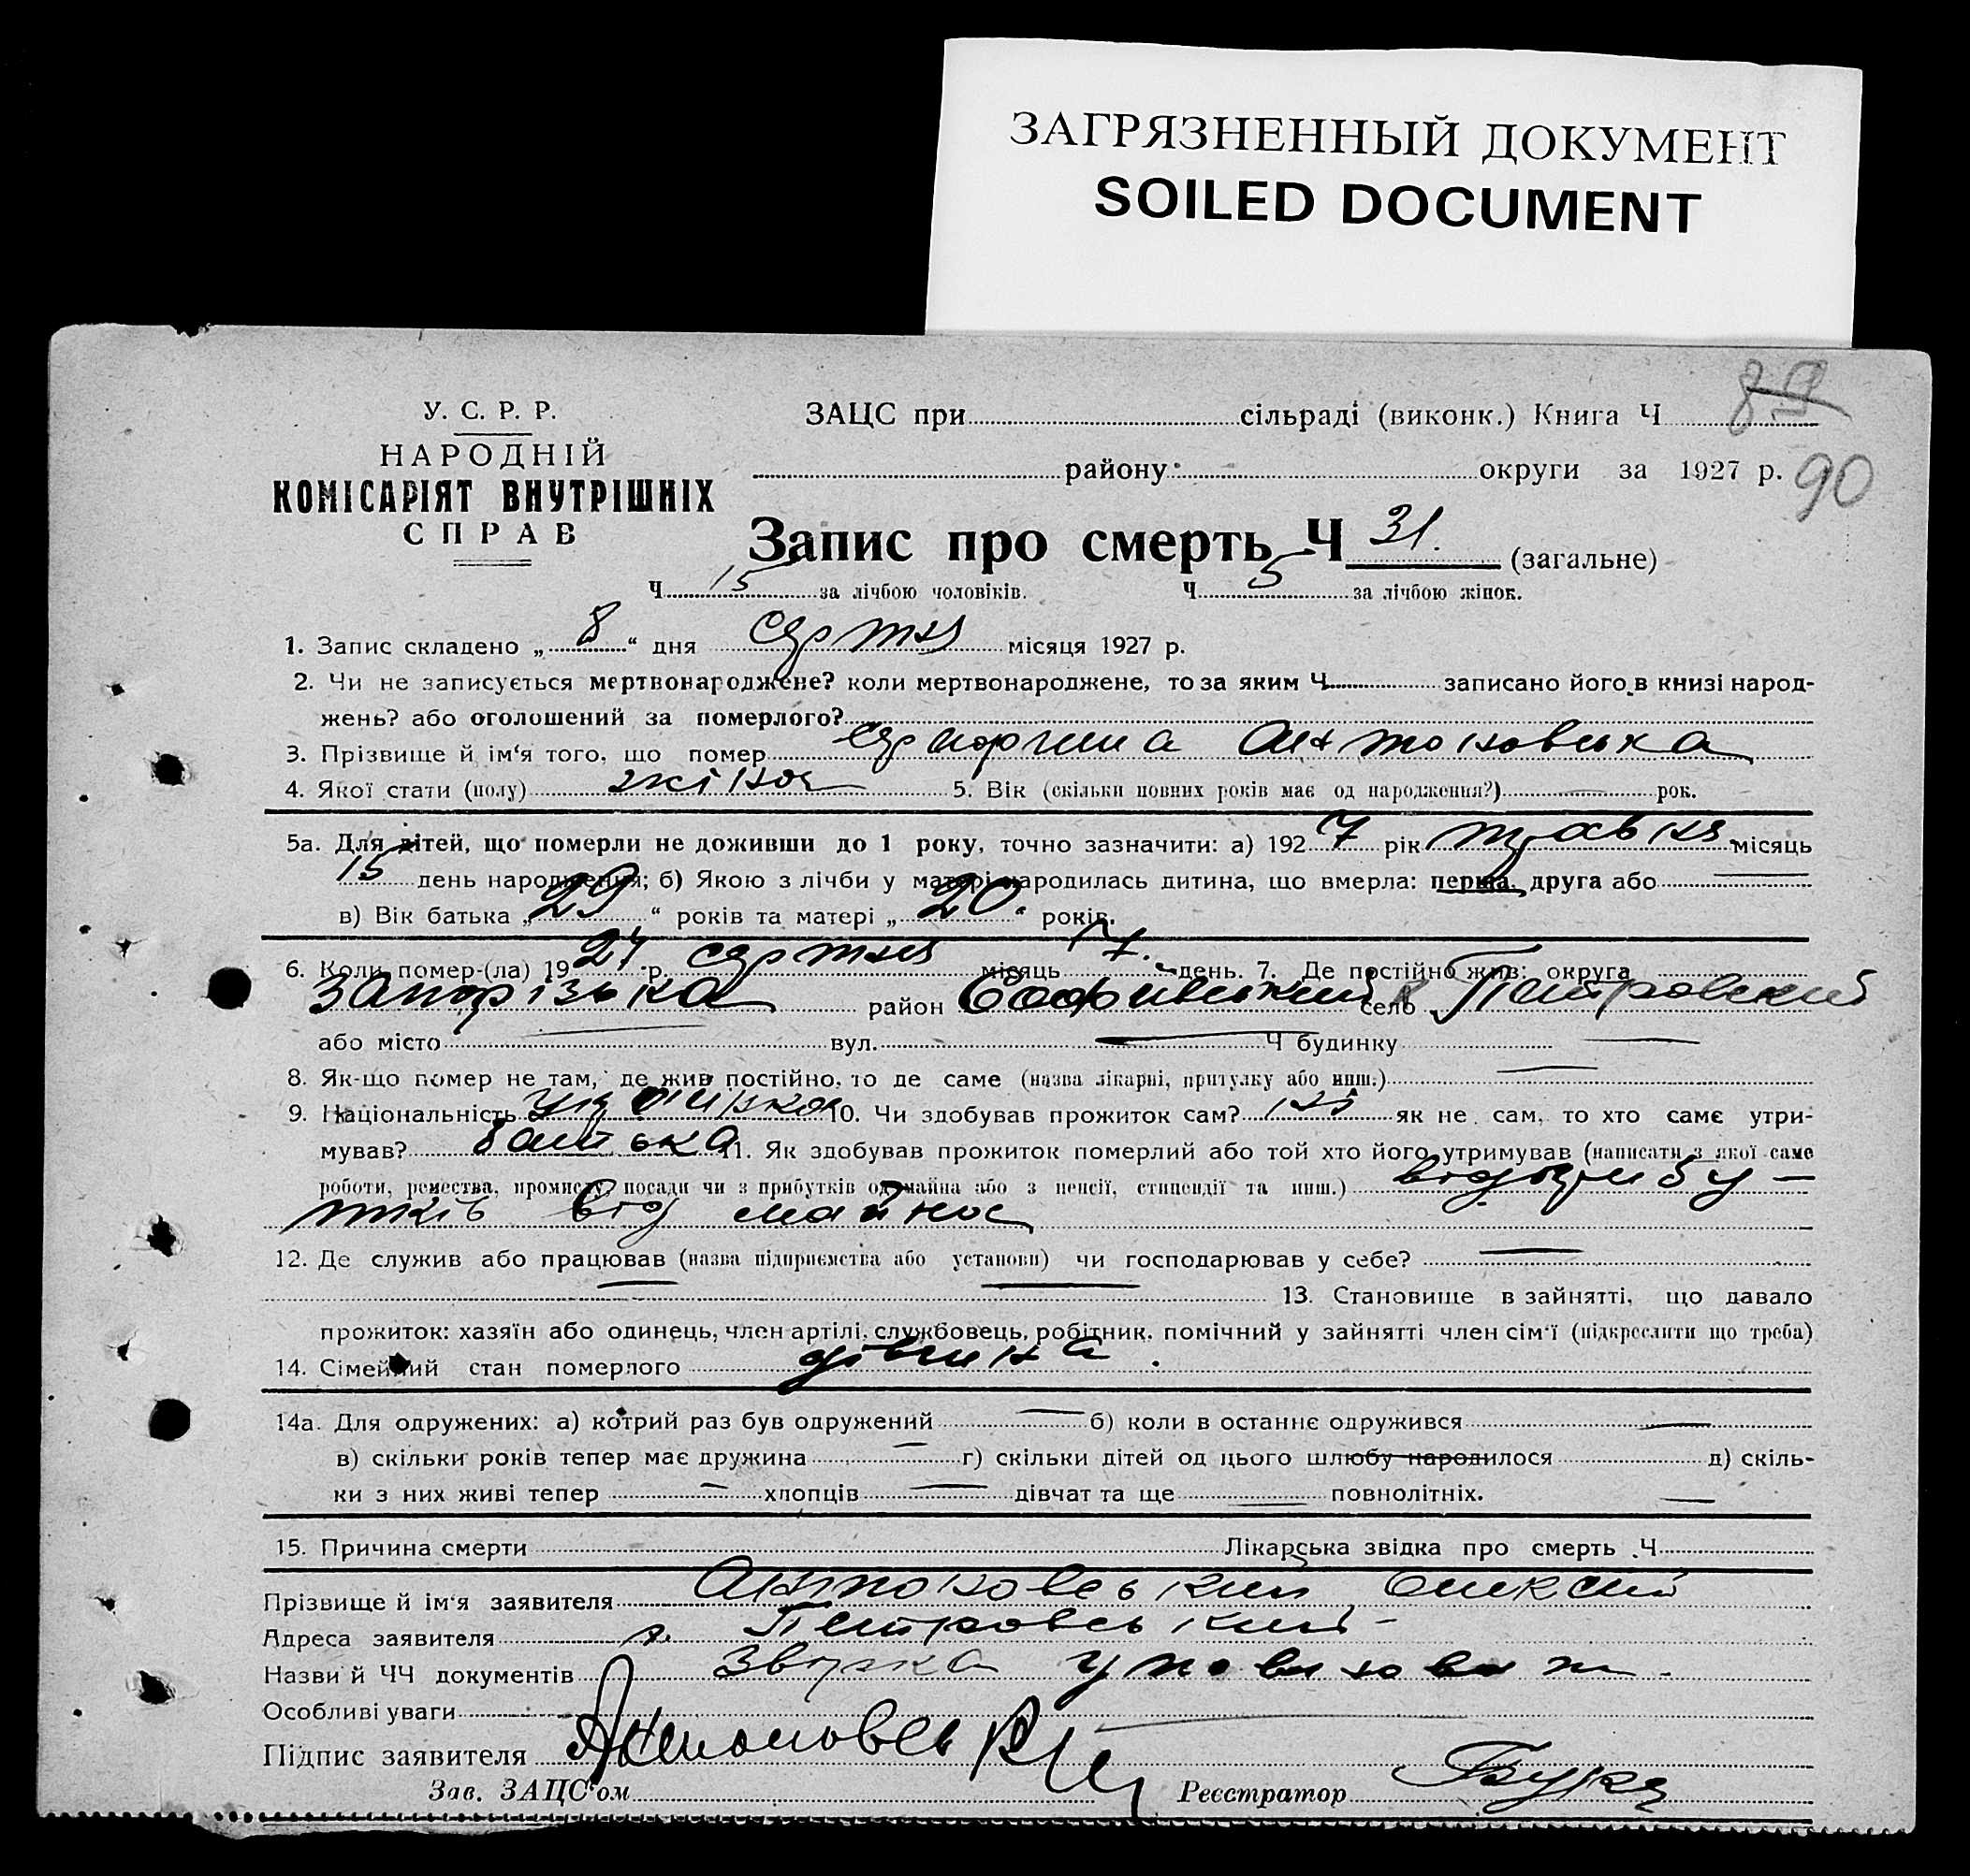 ЗАГРЯЗНЕННЫЙ ДОКУМЕНТ
SOILED DOCUMENT
89
У. С. Р. Р.
НАРОДНІЙ
КОМІСАРІЯТ ВНУТРІШНІХ
СПРАВ
ЗАЦС при сільраді (виконк.) Книга Ч
району округи за 1927 р. 90
Запис про смерть Ч 31. (загальне)
Ч 15 за лічбою чоловіків. Ч за лічбою жінок.
1. Запис складено „ 8 “ дня серпня місяця 1927 р.
2. Чи не записується мертвонароджене? коли мертвонароджене, то за яким Ч записано його в книзі народ-
жень? або оголошений за померлого?
3. Прізвище й ім‘я того, що помер Антоновська
4. Якої стати (полу) жіноч 5. Вік (скільки повних років має од народження?) — рок.
5а. Для дітей, що померли не доживши до 1 року, точно зазначити: а) 1927 рік травня місяць
15 день народження; б) Якою з лічби у матері народилась дитина, що вмерла: перша, друга або —
в) Вік батька „ 29 “ років та матері „ 20. “ років.
6. Коли помер-(ла) 1927 р. серпня місяць 7. день. 7. Де постійно жив: округа
Запорізька район Софіївський село Петровский
або місто — вул. — Ч будинку —
8. Як-що помер не там, де жив постійно, то де саме (назва лікарні, притулку або инш.) —
9. Національність Українка 10. Чи здобував прожиток сам? ні як не сам, то хто саме утри-
мував? батька 11. Як здобував прожиток померлий або той хто його утримував (написати з якої саме
роботи, ремества, промислу, посади чи з прибутків од майна або з пенсії, стипендії та инш.) від прибу-
тків від майна
12. Де служив або працював (назва підприємства або установи) чи господарював у себе? —
— — 13. Становище в зайнятті, що давало
прожиток: хазяїн або одинець, член артілі, службовець, робітник, помічний у зайнятті член сім‘ї (підкреслити що треба)
14. Сімейний стан померлого дівчина.
14а. Для одружених: а) котрий раз був одружений — б) коли в останнє одружився —
в) скільки років тепер має дружина — г) скільки дітей од цього шлюбу народилося д) скіль-
ки з них живі тепер — хлопців — дівчат та ще — повнолітніх. —
15. Причина смерти Лікарська звідка про смерть Ч
Прізвище й ім‘я заявителя Антоновський Олексій
Адреса заявителя х. Петровський
Назви й ЧЧ документів
Особливі уваги
Підпис заявителя Антоновський
Зав. ЗАЦС‘ом Реєстратор